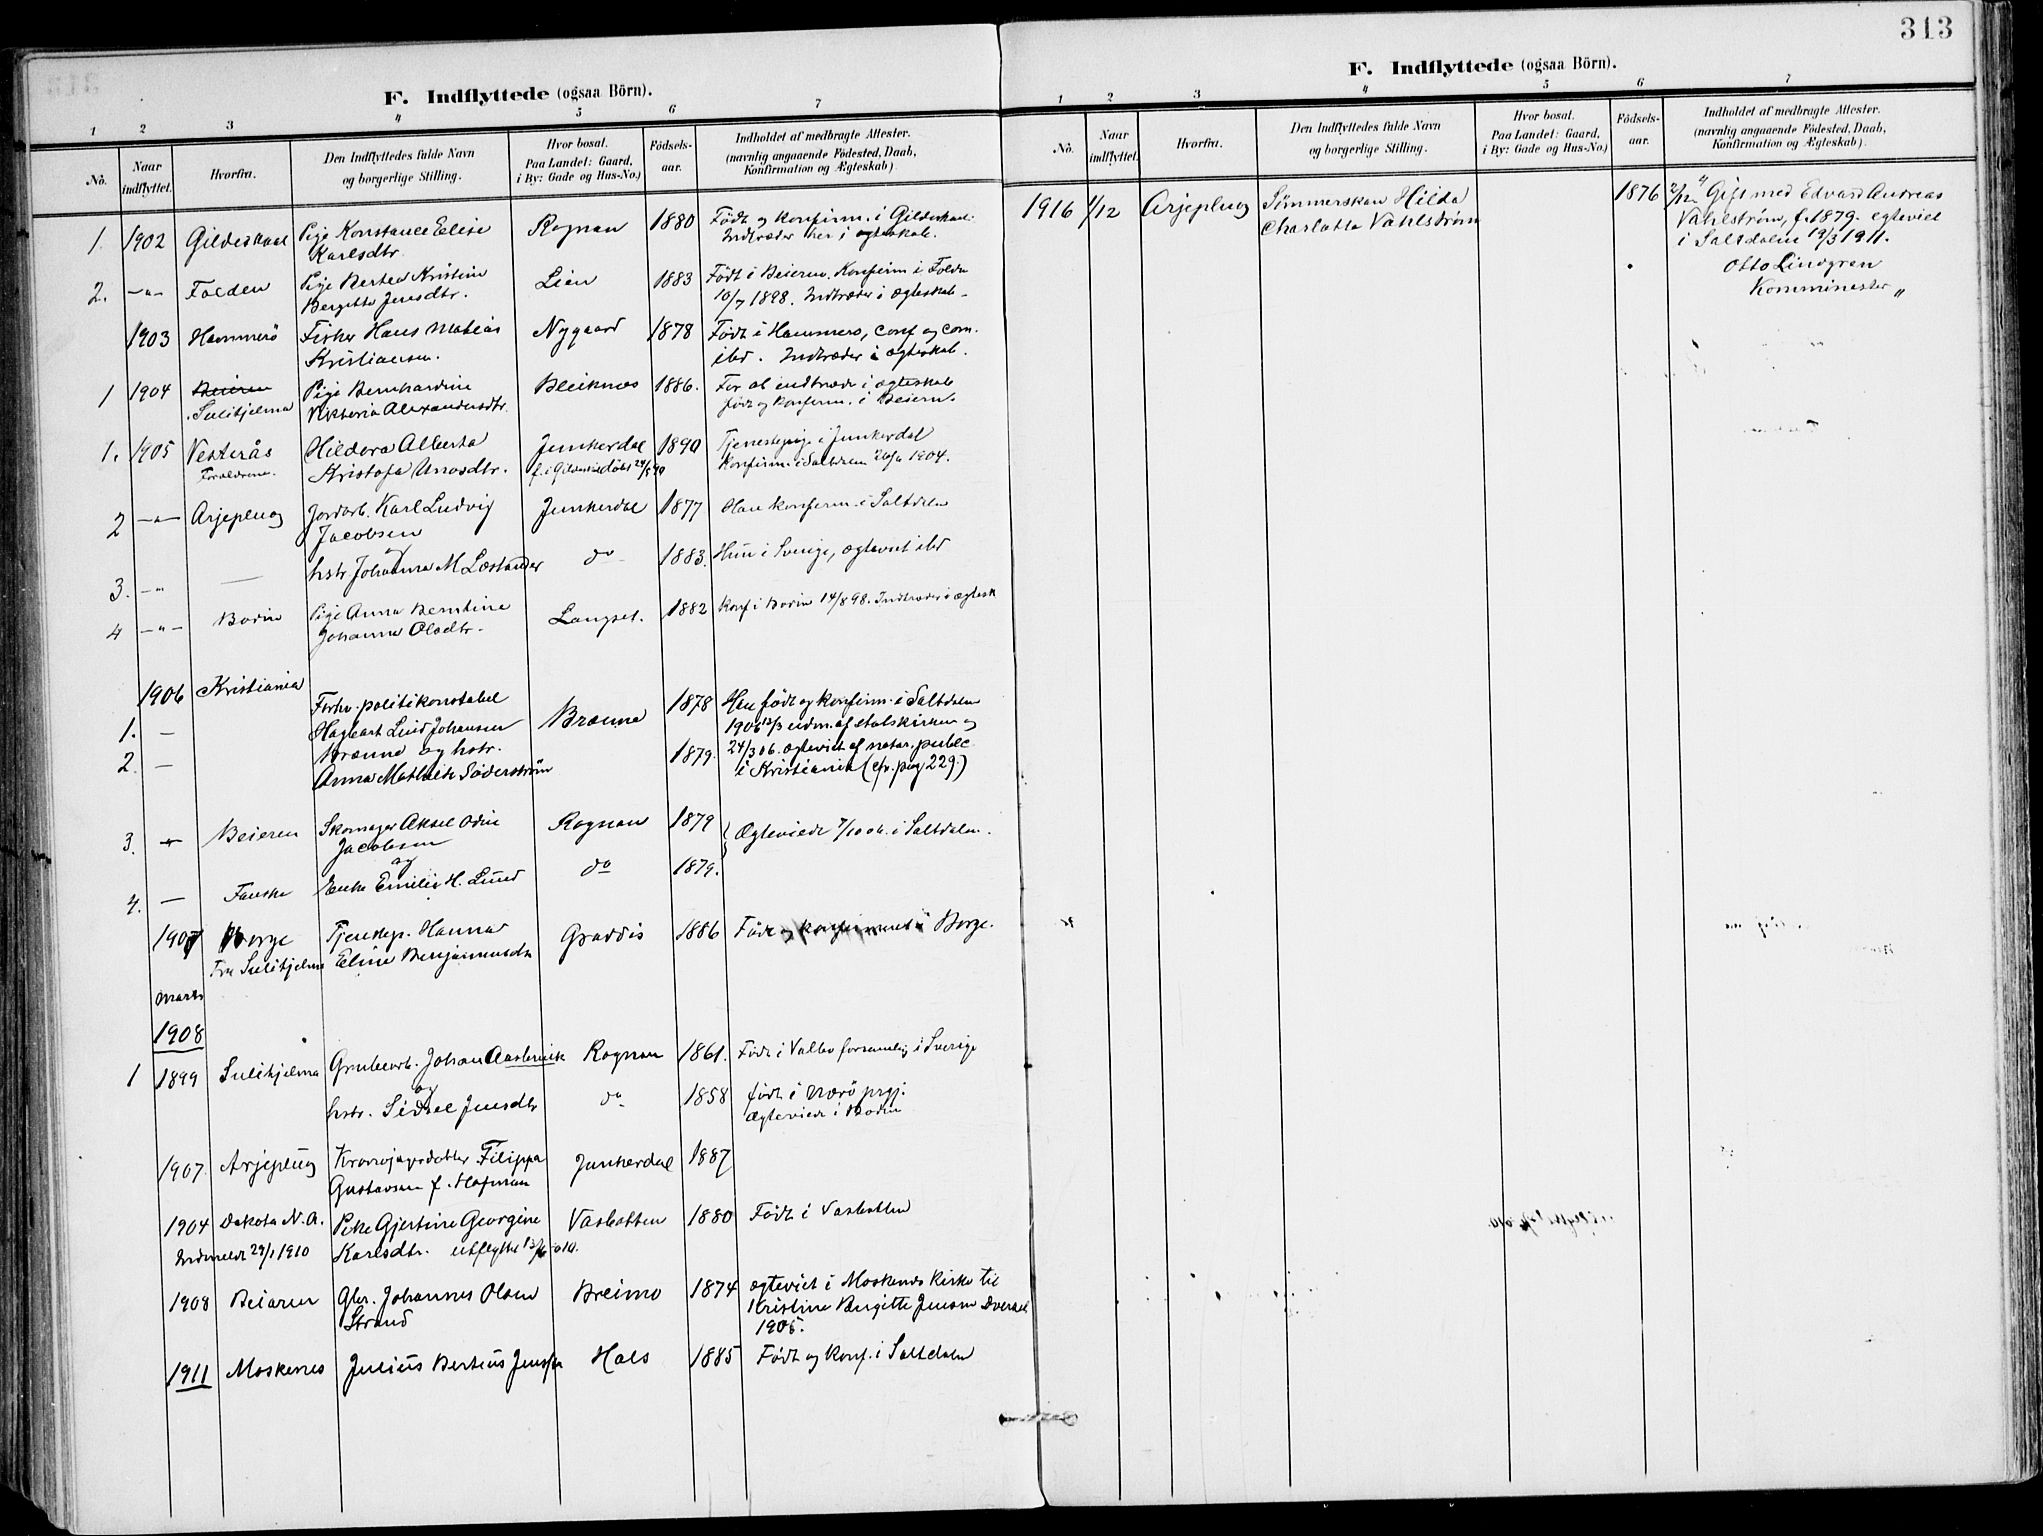 F. Indflyttede (ogsaa Börn).
1 2 3 4 5 6 7
No. Naar indflyttet. Hvorfra. Den Indflyttedes fulde Navn og borgerlige Stilling. Hvor bosat. Paa Landet: Gaard, i By: Gade og Hus-No.) Födsels-aar. Indholdet af medbragte Attester. (navnlig angaaende Födested, Daab, Konfirmation og Ægteskab).
1. 1902 Gildeskaal Pige Konstance Elise Rognan 1880 Født og konfirm. i Gildeskaal.
Karlsdtr. Indtræder her i ægteskab.
2. -"- Folden Pige Bertea Kristine Lien 1883 Født i Beieren. Konfirm i Folden
Bergitte Jensdtr. 10/7 1898. Indtræder i ægteskab.
1903 Hammerö Fisker Hans Matias Nygaard 1878 Født i Hammerö, conf og com.
Kristiansen. ibd. Indtræder i ægteskab.
1 1904 Beieren Pige Bernhardine Bleiknes 1886. For at indtræde i ægteskab
Sulitjelma Viktoria Alexandersdtr. født og konfirm. i Beiern.
1. 1905 Vesterås Hildora Alberta Junkerdal 1890 Tjenestepige i Junkerdal
Forældrene. Kristofa Unosdtr. Konfirm. i Saltdalen 1904.
2 -"- Arjeplug Jordarb. Karl Ludvig Junkerdal 1877 Han konfirm. i Saltdalen
Jacobsen
og
3. -"- — hstr Johanna M. Læstander do 1883. Hun i Sverige, ægteviet ibd
4 -"- Bodin Pige Anna Berntine Langset. 1882 Konf i Bodin 14/8 98. Indtræder i ægtesk
Johanna Olsdtr.
1906 Kristiania
Forhv. politikonstabel 1878 Han født og konfirm. i Saltdalen
1. — Hagbart Lind Johansen Brænne 1906 13/3 udm. af statskirken og
2. — Brænne og hstr. 1879. 24/3 06. ægteviet af notar. public
Anna Mathilde Söderström i Kristiania (cfr. pag 229.)
3. -"- Beieren Skomager Aksel Odin Rognan 1879 Ægteviede 7/10 06. i Saltdalen.
Jacobsen
og
4. — Fauske Enke Emilie H. Lund do 1879.
1907 Borge Tjenestep. Hanna Graddis 1886 Født og konfirmeret i Borge.
Fra Sulitjelma Eline Benjaminsdtr
marts
1908
1 1899 Sulitjelma Grubearb. Johan Aasbrink Rognan 1861. Født i Valbo forsamling i Sverige
og
hstr. Sidsel Jensdtr do 1858 født i Nærö prgj.
ægteviede i Bodin
1907. Arjeplug Kronojægerdatter Filippa Junkerdal 1887
Gustavsen f. Hofman
1904 Dakota N. A. Pike Gjertine Georgine Vasbotten 1880 Født i Vasbotten
Indmeldt 29/1 1910 Karlsdtr. utflyttet
1908 Beiaren Gbr. Johannes Olsen Breimo 1874 ægteviet i Moskenes Kirke til
Strand Kristine Birgitte Jensen
1905.
1911 Moskenes Julius Berteus Jensen Hals 1885 Født og konf. i Saltdalen
313
F. Indflyttede (ogsaa Börn).
1 2 3 4 5 6 7
No. Naar indflyttet. Hvorfra. Den Indflyttedes fulde Navn og borgerlige Stilling. Hvor bosat. Paa Landet: Gaard, i By: Gade og Hus-No.) Födsels-aar. Indholdet af medbragte Attester. (navnlig angaaende Födested, Daab, Konfirmation og Ægteskab).
1916 1/12 Arjeplug Sömmerskan Hilda 1876 2/12 "Gift med Edvard Andreas
Charlotta Vahlström Vahlström, f. 1879. egteviet
i Saltdalen 19/3 1911.
Otto Lindgren
Komminister"